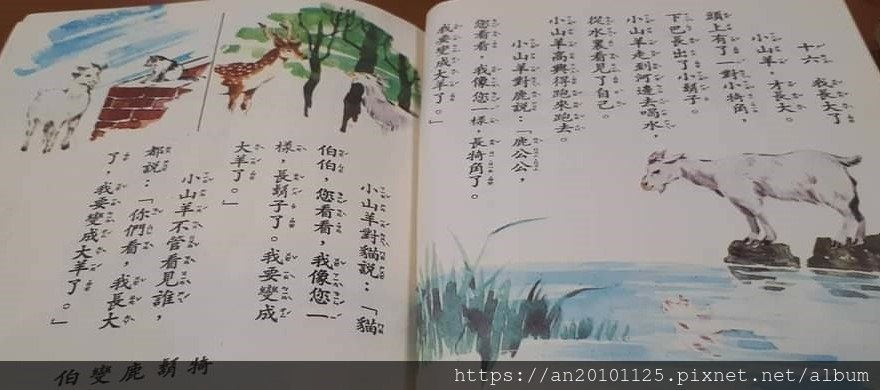 十六　我長大了
小山羊，才長大。
頭上有了一對小犄角，
下巴長出了小鬍子。
小山羊走到河邊去喝水，
從水裏看見了自己。
小山羊高興得跑來跑去。
小山羊對鹿說：「鹿公公，
您看看，我像您一樣，長犄角了。
我要變成大羊了。」
小山羊對貓說：「貓
伯伯，您看看，我像您一
樣，長鬍子了。我要變成
大羊了。」
小山羊不管看見誰，
都說：「你們看，我長大
了，我要變成大羊了。」
犄鬍鹿變伯
https://an20101125.pixnet.net/album